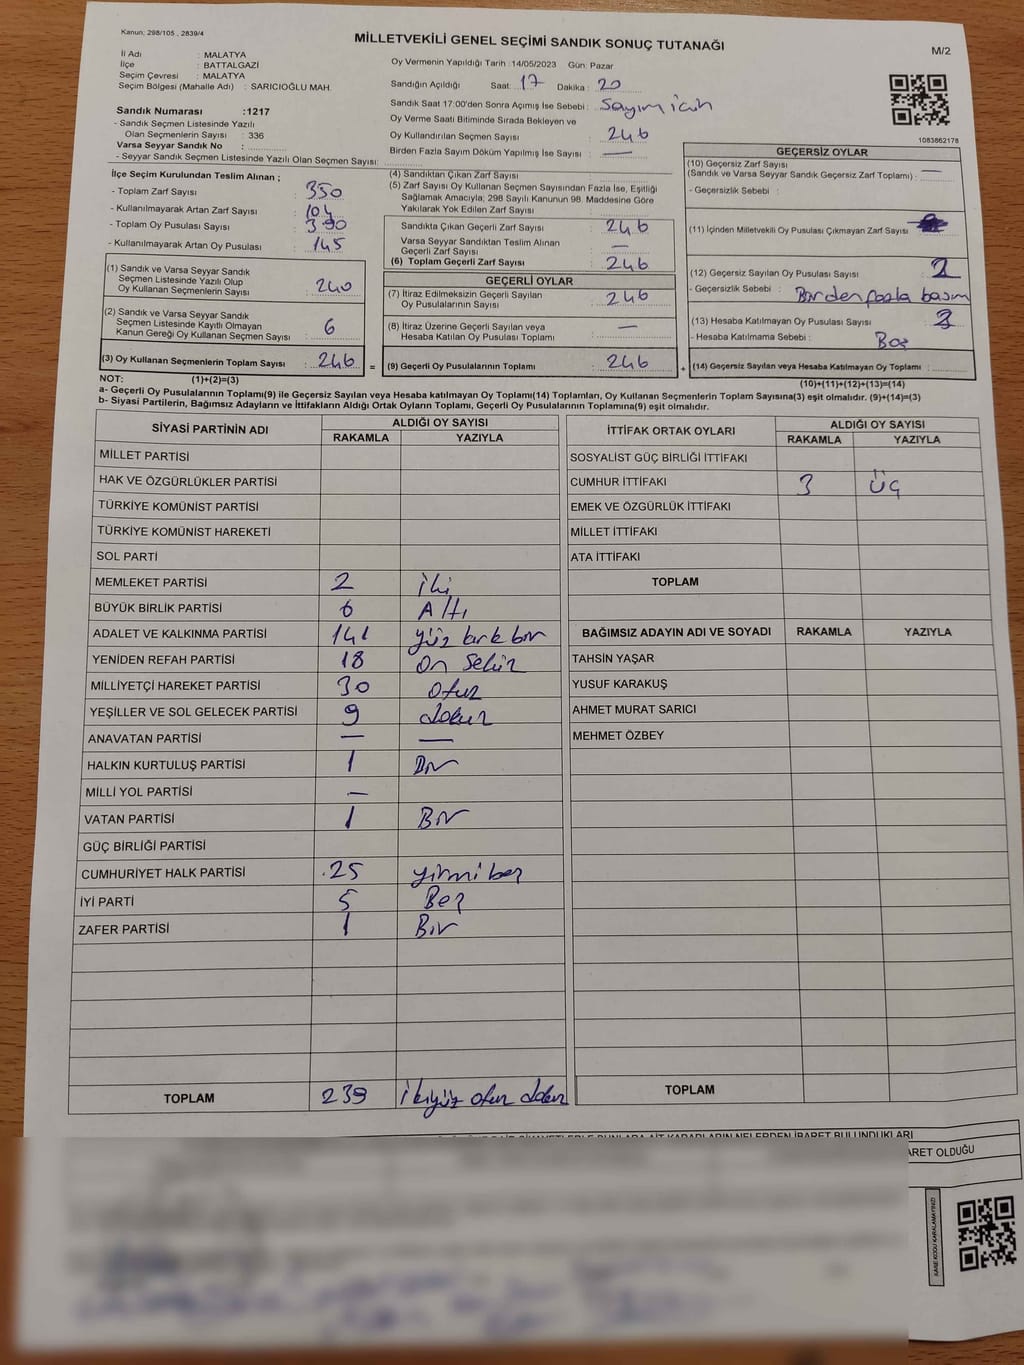 Kanun; 298/105 , 2839/4
MİLLETVEKİLİ GENEL SEÇİMİ SANDIK SONUÇ TUTANAĞI
M/2
İl Adı : MALATYA
İlçe : BATTALGAZİ
Seçim Çevresi : MALATYA
Seçim Bölgesi (Mahalle Adı) : SARICIOĞLU MAH.
Oy Vermenin Yapıldığı Tarih :14/05/2023 Gün: Pazar
Sandığın Açıldığı Saat: 17 Dakika: 20
Sandık Saat 17:00'den Sonra Açımış İse Sebebi : Sayım için
Oy Verme Saati Bitiminde Sırada Bekleyen ve
Oy Kullandırılan Seçmen Sayısı : 246
Birden Fazla Sayım Döküm Yapılmış İse Sayısı : —
Sandık Numarası :1217
- Sandık Seçmen Listesinde Yazılı
Olan Seçmenlerin Sayısı : 336
Varsa Seyyar Sandık No :
- Seyyar Sandık Seçmen Listesinde Yazılı Olan Seçmen Sayısı:
1083862178
İlçe Seçim Kurulundan Teslim Alınan ;
- Toplam Zarf Sayısı : 350
- Kullanılmayarak Artan Zarf Sayısı : 104
- Toplam Oy Pusulası Sayısı : 390
- Kullanılmayarak Artan Oy Pusulası : 145
(1) Sandık ve Varsa Seyyar Sandık
Seçmen Listesinde Yazılı Olup
Oy Kullanan Seçmenlerin Sayısı : 240
(2) Sandık ve Varsa Seyyar Sandık
Seçmen Listesinde Kayıtlı Olmayan
Kanun Gereği Oy Kullanan Seçmen Sayısı : 6
(3) Oy Kullanan Seçmenlerin Toplam Sayısı : 246 =
(4) Sandıktan Çıkan Zarf Sayısı :
(5) Zarf Sayısı Oy Kullanan Seçmen Sayısından Fazla İse, Eşitliği
Sağlamak Amacıyla; 298 Sayılı Kanunun 98. Maddesine Göre
Yakılarak Yok Edilen Zarf Sayısı :
Sandıkta Çıkan Geçerli Zarf Sayısı : 246
Varsa Seyyar Sandıktan Teslim Alınan
Geçerli Zarf Sayısı : —
(6) Toplam Geçerli Zarf Sayısı : 246
GEÇERLİ OYLAR
(7) İtiraz Edilmeksizin Geçerli Sayılan
Oy Pusulalarının Sayısı : 246
(8) İtiraz Üzerine Geçerli Sayılan veya
Hesaba Katılan Oy Pusulası Toplamı : —
(9) Geçerli Oy Pusulalarının Toplamı : 246 +
GEÇERSİZ OYLAR
(10) Geçersiz Zarf Sayısı
(Sandık ve Varsa Seyyar Sandık Geçersiz Zarf Toplamı) : —
- Geçersizlik Sebebi :
(11) İçinden Milletvekili Oy Pusulası Çıkmayan Zarf Sayısı
(12) Geçersiz Sayılan Oy Pusulası Sayısı :
- Geçersizlik Sebebi : Birden fazla basım
(13) Hesaba Katılmayan Oy Pusulası Sayısı :
- Hesaba Katılmama Sebebi : Boş
(14) Geçersiz Sayılan veya Hesaba Katılmayan Oy Toplamı :
NOT: (1)+(2)=(3)
(10)+(11)+(12)+(13)=(14)
a- Geçerli Oy Pusulalarının Toplamı(9) ile Geçersiz Sayılan veya Hesaba katılmayan Oy Toplamı(14) Toplamları, Oy Kullanan Seçmenlerin Toplam Sayısına(3) eşit olmalıdır. (9)+(14)=(3)
b- Siyasi Partilerin, Bağımsız Adayların ve İttifakların Aldığı Ortak Oyların Toplamı, Geçerli Oy Pusulalarının Toplamına(9) eşit olmalıdır.
SİYASİ PARTİNİN ADI
ALDIĞI OY SAYISI
RAKAMLA YAZIYLA
MİLLET PARTİSİ
HAK VE ÖZGÜRLÜKLER PARTİSİ
TÜRKİYE KOMÜNİST PARTİSİ
TÜRKİYE KOMÜNİST HAREKETİ
SOL PARTİ
MEMLEKET PARTİSİ 2 iki
BÜYÜK BİRLİK PARTİSİ 6 Altı
ADALET VE KALKINMA PARTİSİ 141 yüz kırk bir
YENİDEN REFAH PARTİSİ 18 On Sekiz
MİLLİYETÇİ HAREKET PARTİSİ 30 Otuz
YEŞİLLER VE SOL GELECEK PARTİSİ 9 dokuz
ANAVATAN PARTİSİ — —
HALKIN KURTULUŞ PARTİSİ 1 Bir
MİLLİ YOL PARTİSİ —
VATAN PARTİSİ 1 Bir
GÜÇ BİRLİĞİ PARTİSİ
CUMHURİYET HALK PARTİSİ 25 yirmi beş
İYİ PARTİ 5 Beş
ZAFER PARTİSİ 1 Bir
TOPLAM 239 ikiyüz otuz dokuz
İTTİFAK ORTAK OYLARI
ALDIĞI OY SAYISI
RAKAMLA YAZIYLA
SOSYALİST GÜÇ BİRLİĞİ İTTİFAKI
CUMHUR İTTİFAKI 3 üç
EMEK VE ÖZGÜRLÜK İTTİFAKI
MİLLET İTTİFAKI
ATA İTTİFAKI
TOPLAM
BAĞIMSIZ ADAYIN ADI VE SOYADI RAKAMLA YAZIYLA
TAHSİN YAŞAR
YUSUF KARAKUŞ
AHMET MURAT SARICI
MEHMET ÖZBEY
TOPLAM
BULUNDUKLARI
ARET OLDUĞU